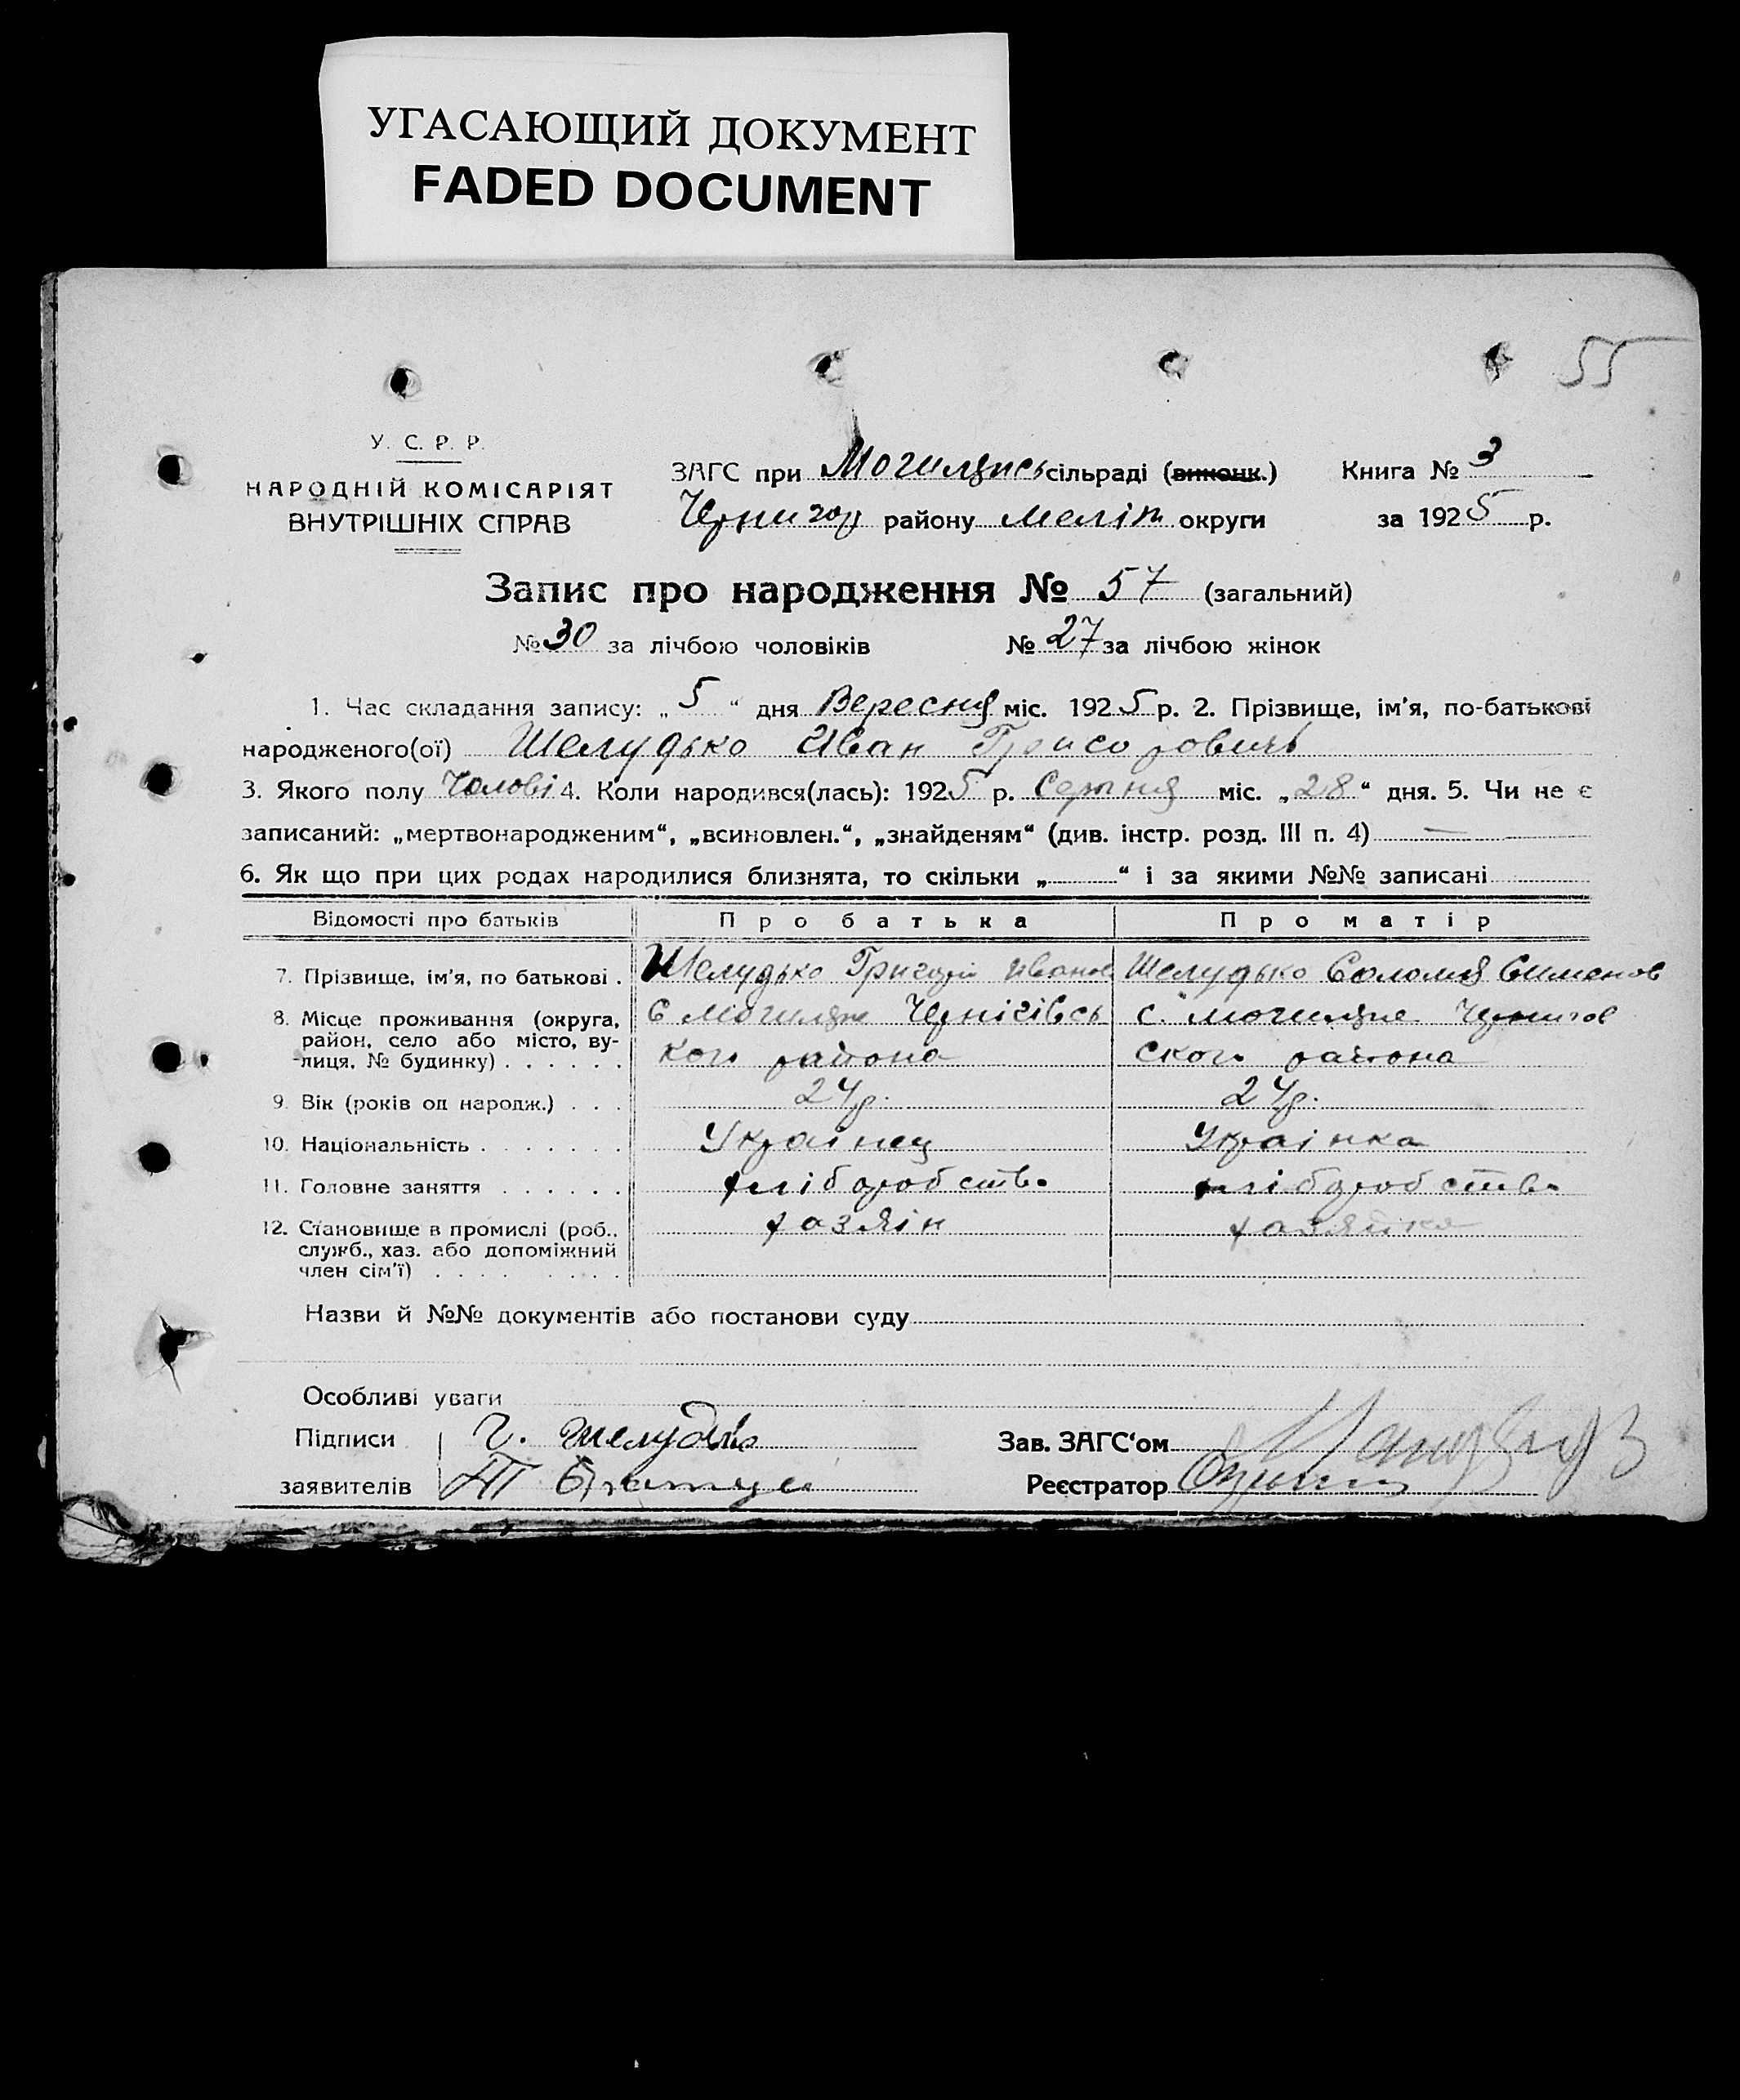 УГАСАЮЩИЙ ДОКУМЕНТ
FADED DOCUMENT
55
У. С. Р. Р.
НАРОДНІЙ КОМІСАРІЯТ
ВНУТРІШНІХ СПРАВ
ЗАГС при Могилянсь сільраді (виконк.) Книга № 3
Чернигов району Меліт округи за 1925 р.
Запис про народження № 57 (загальний)
№ 30 за лічбою чоловіків № 27 за лічбою жінок
1. Час складання запису: „5“ дня Вересня міс. 1925 р. 2. Прізвище, ім'я, по-батькові
народженого(ої) Шелудько Иван
3. Якого полу Чолові 4. Коли народився(лась): 1925 р. Серпня міс. „28“ дня. 5. Чи не є
записаний: „мертвонародженим“, „всиновлен.“, „знайденям“ (див. інстр. розд. III п. 4) —
6. Як що при цих родах народилися близнята, то скільки „ “ і за якими №№ записані
Відомості про батьків Про батька Про матір
7. Прізвище, ім'я, по батькові . Шелудько Григорій Иванов Шелудько Соломия Сименов
8. Місце проживання (округа, район, село або місто, вулиця, № будинку) . . . . . . С Могиляне Чернігівсь с. Могиляне Чернигов
кого района ского района
9. Вік (років од народж.) . . . 24р. 24р.
10. Національність . . . . . . . Українец Українка
11. Головне заняття . . . . . . хліборобство хліборобство
12. Становище в промислі (роб., служб., хаз. або допоміжний член сім'ї) . . . . . . . . . хазяін хазяйка
Назви й №№ документів або постанови суду
Особливі уваги
Підписи Г. Шелудько Зав. ЗАГС'ом
заявителів Реєстратор